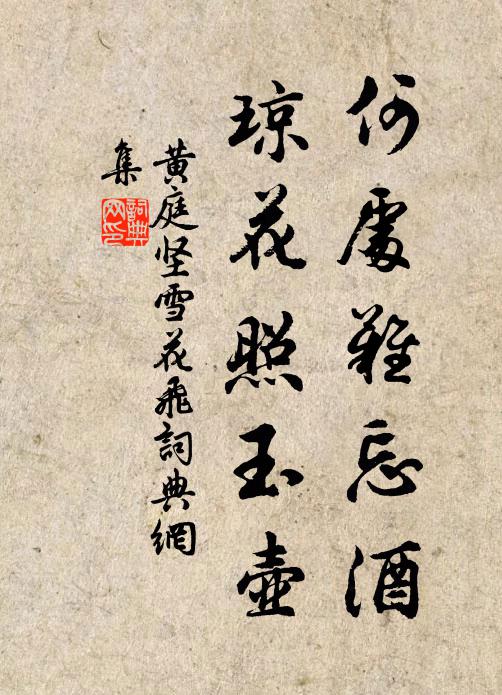 何處難忘酒
琼花照玉壺
黄庭坚雪花飛詞典網
集
詞典網印